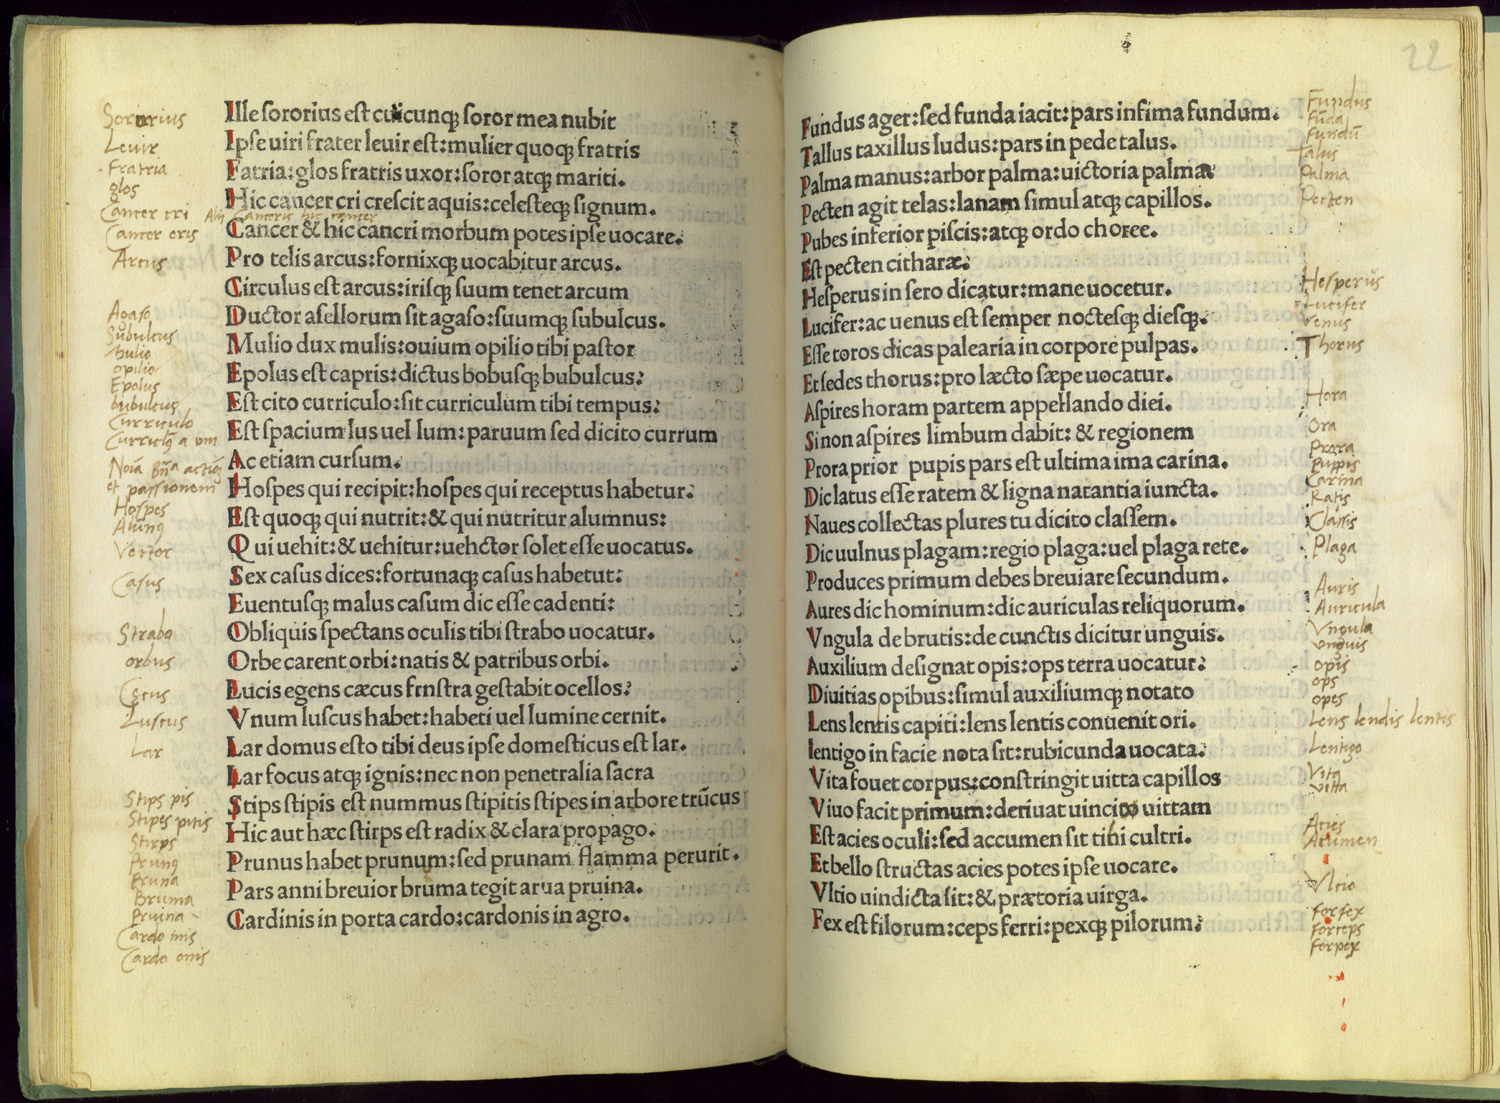 Sororius
Leuir
Fratria
glos
Cancer cri
Cancer eris
Arcus
Agaso
Subulcus
Mulio
opilio
Epolus
bubulcus
Curriculo
Hospes
Vector
Casus
Strabo
orbus
Cecus
Luscus
Lar
Stips pis
Stipes pitis
Stirps
Prunꝰ
Pruna
Bruma
Pruina
Cardo inis
Cardo onis
Ille sororius est cuicunqꝫ soror mea nubit
Ipse uiri frater leuir est: mulier quoqꝫ fratris
Fatria: glos fratris uxor: soror atqꝫ mariti.
Hic cancer cri crescit aquis: celesteqꝫ signum.
Cancer & hic cancri morbum potes ipse uocare.
Pro telis arcus: fornixqꝫ uocabitur arcus.
Circulus est arcus: irisqꝫ suum tenet arcum
Ductor asellorum sit agaso: suumqꝫ subulcus.
Mulio dux mulis: ouium opilio tibi pastor
Epolus est capris: dictus bobusqꝫ bubulcus:
Est cito curriculo: sit curriculum tibi tempus:
Est spacium lus uel lum: paruum sed dicito currum
Ac etiam cursum.
Hospes qui recipit: hospes qui receptus habetur.
Est quoqꝫ qui nutrit: & qui nutritur alumnus:
Qui uehit: & uehitur: uehctor solet esse uocatus.
Sex casus dices: fortunaqꝫ casus habetut:
Euentusqꝫ malus casum dic esse cadenti:
Obliquis spectans oculis tibi strabo uocatur.
Orbe carent orbi: natis & patribus orbi.
Lucis egens cæcus frnstra gestabit ocellos:
Vnum luscus habet: habeti uel lumine cernit.
Lar domus esto tibi deus ipse domesticus est lar.
Lar focus atqꝫ ignis: nec non penetralia sacra
Stips stipis est nummus stipitis stipes in arbore trūcus
Hic aut hæc stirps est radix & clara propago.
Prunus habet prunum: sed prunam flamma perurit.
Pars anni breuior bruma tegit arua pruina.
Cardinis in porta cardo: cardonis in agro.
22
Fundus ager: sed funda iacit: pars infima fundum.
Tallus taxillus ludus: pars in pede talus.
Palma manus: arbor palma: uictoria palma
Pecten agit telas: lanam simul atqꝫ capillos.
Pubes inferior piscis: atqꝫ ordo choree.
Est pecten citharæ:
Hesperus in sero dicatur: mane uocetur.
Lucifer: ac uenus est semper noctesqꝫ diesqꝫ.
Esse toros dicas palearia in corpore pulpas.
Et sedes thorus: pro læcto sæpe uocatur.
Aspires horam partem appellando diei.
Si non aspires limbum dabit: & regionem
Prora prior pupis pars est ultima ima carina.
Dic latus esse ratem & ligna natantia iuncta.
Naues collectas plures tu dicito classem.
Dic uulnus plagam: regio plaga: uel plaga rete.
Produces primum debes breuiare secundum.
Aures dic hominum: dic auriculas reliquorum.
Vngula de brutis: de cunctis dicitur unguis.
Auxilium designat opis: ops terra uocatur:
Diuitias opibus: simul auxiliumqꝫ notato
Lens lentis capiti: lens lentis conuenit ori.
lentigo in facie nota sit: rubicunda uocata:
Vita fouet corpus: constringit uitta capillos
Viuo facit primum: deriuat uincio uittam
Est acies oculi: sed accumen sit tibi cultri.
Et bello structas acies potes ipse uocare.
Vltio uindicta sit: & prætoria uirga.
Fex est filorum: ceps ferri: pexqꝫ pilorum:
Fundus
Fūda
Fundū
Talus
Palma
Pecten
Hesperus
Lucifer
Venus
Thorus
Hora
Ora
Prora
Puppis
Carina
Ratis
Classis
Plaga
Auris
Auricula
Vngula
unguis
opis
ops
opes
Lens lendis lentis
Lentigo
Vita
Vitta
Acies
Acumen
Vltio
forfex
forceps
forpex